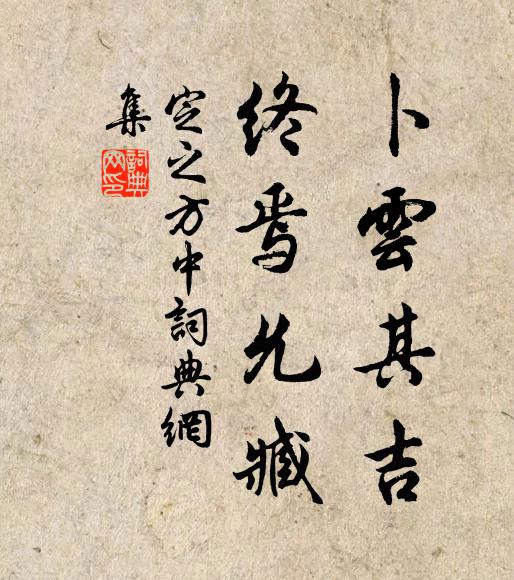 卜雲其吉
終焉允臧
定之方中詞典網
集
詞典
网印